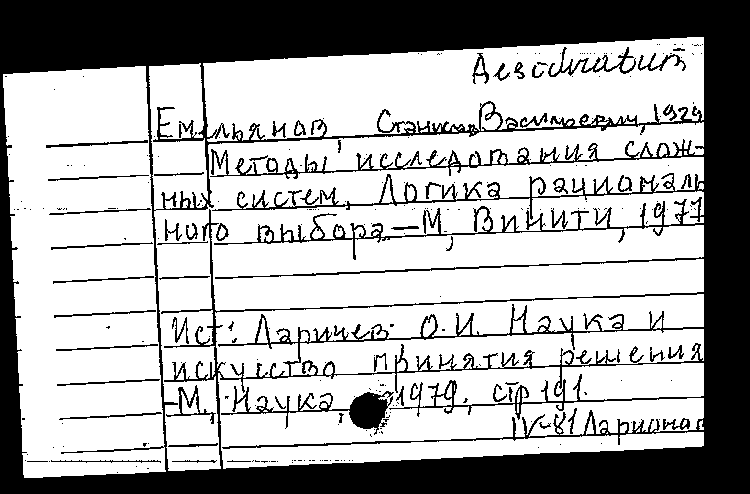 Desideratum
Емельянов, Станислав Васильевич, 1929
Методы исследования слож-
ных систем, Логика рациональ
ного выбора.—М, Винити, 1977
Ист: Ларичев О.И. Наука и
искусство принятия решения
-М., Наука, 1979, стр 191.
IV-81 Ларионов